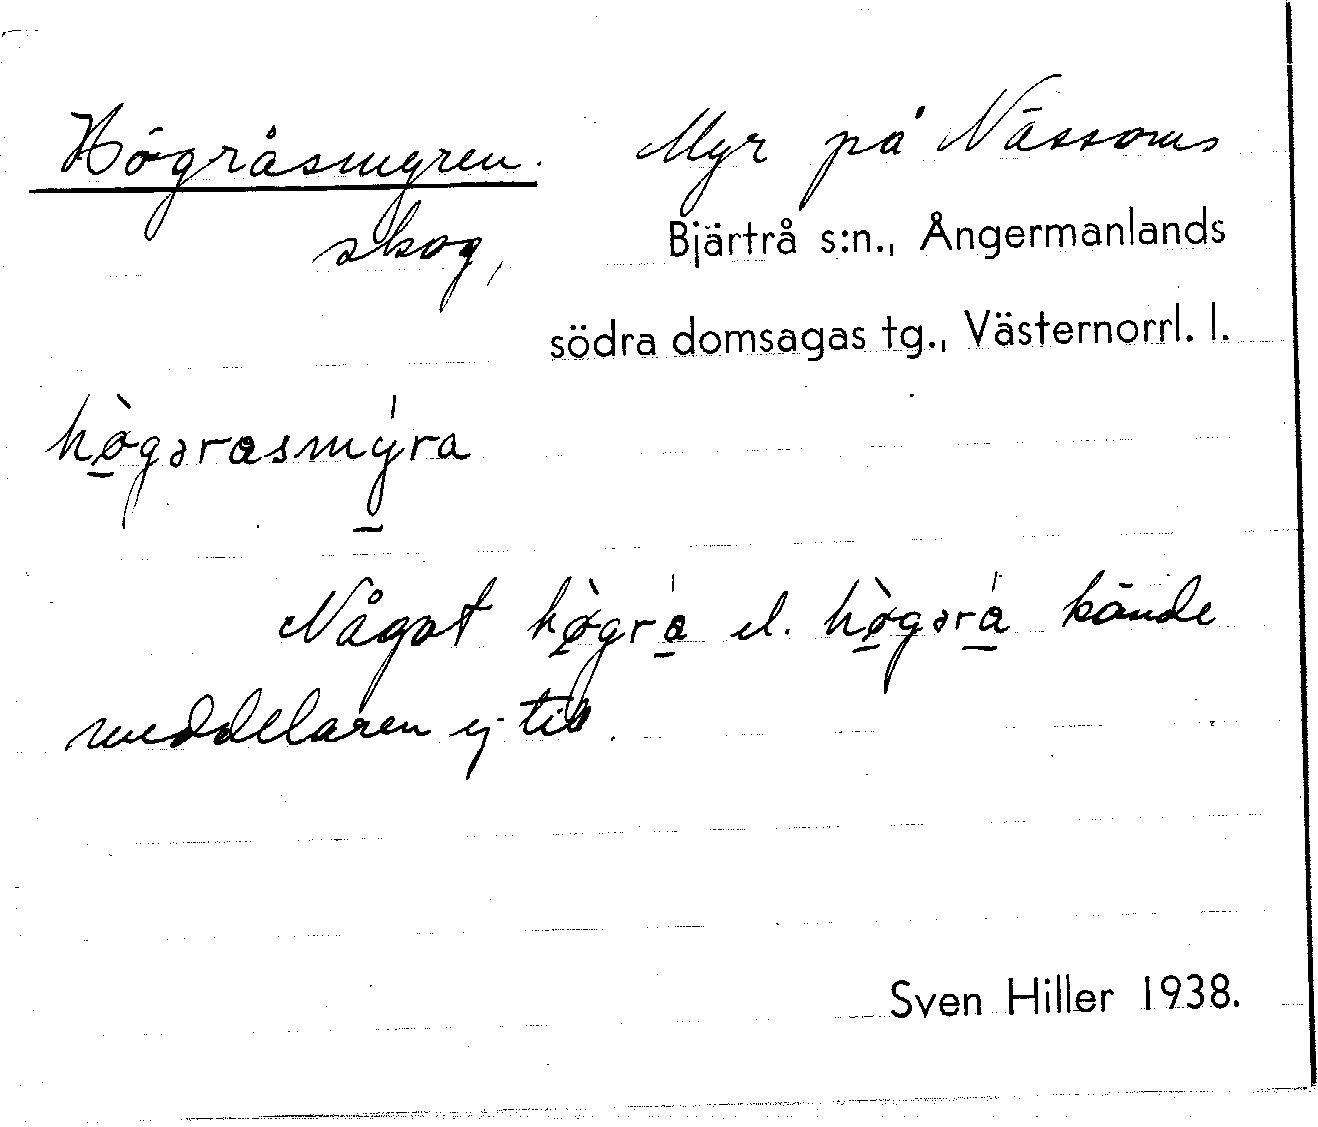 Högråsmyren. Myr på Nässoms
skog, Bjärtrå s:n., Ångermanlands
södra domsagas tg., Västernorrl. l.
hø̱̀gərɑsmý̱ra
Något hø̱̀grɑ̱́ el. hø̱̀gərɑ̱́ kände
meddelaren ej till.
Sven Hiller 1938.